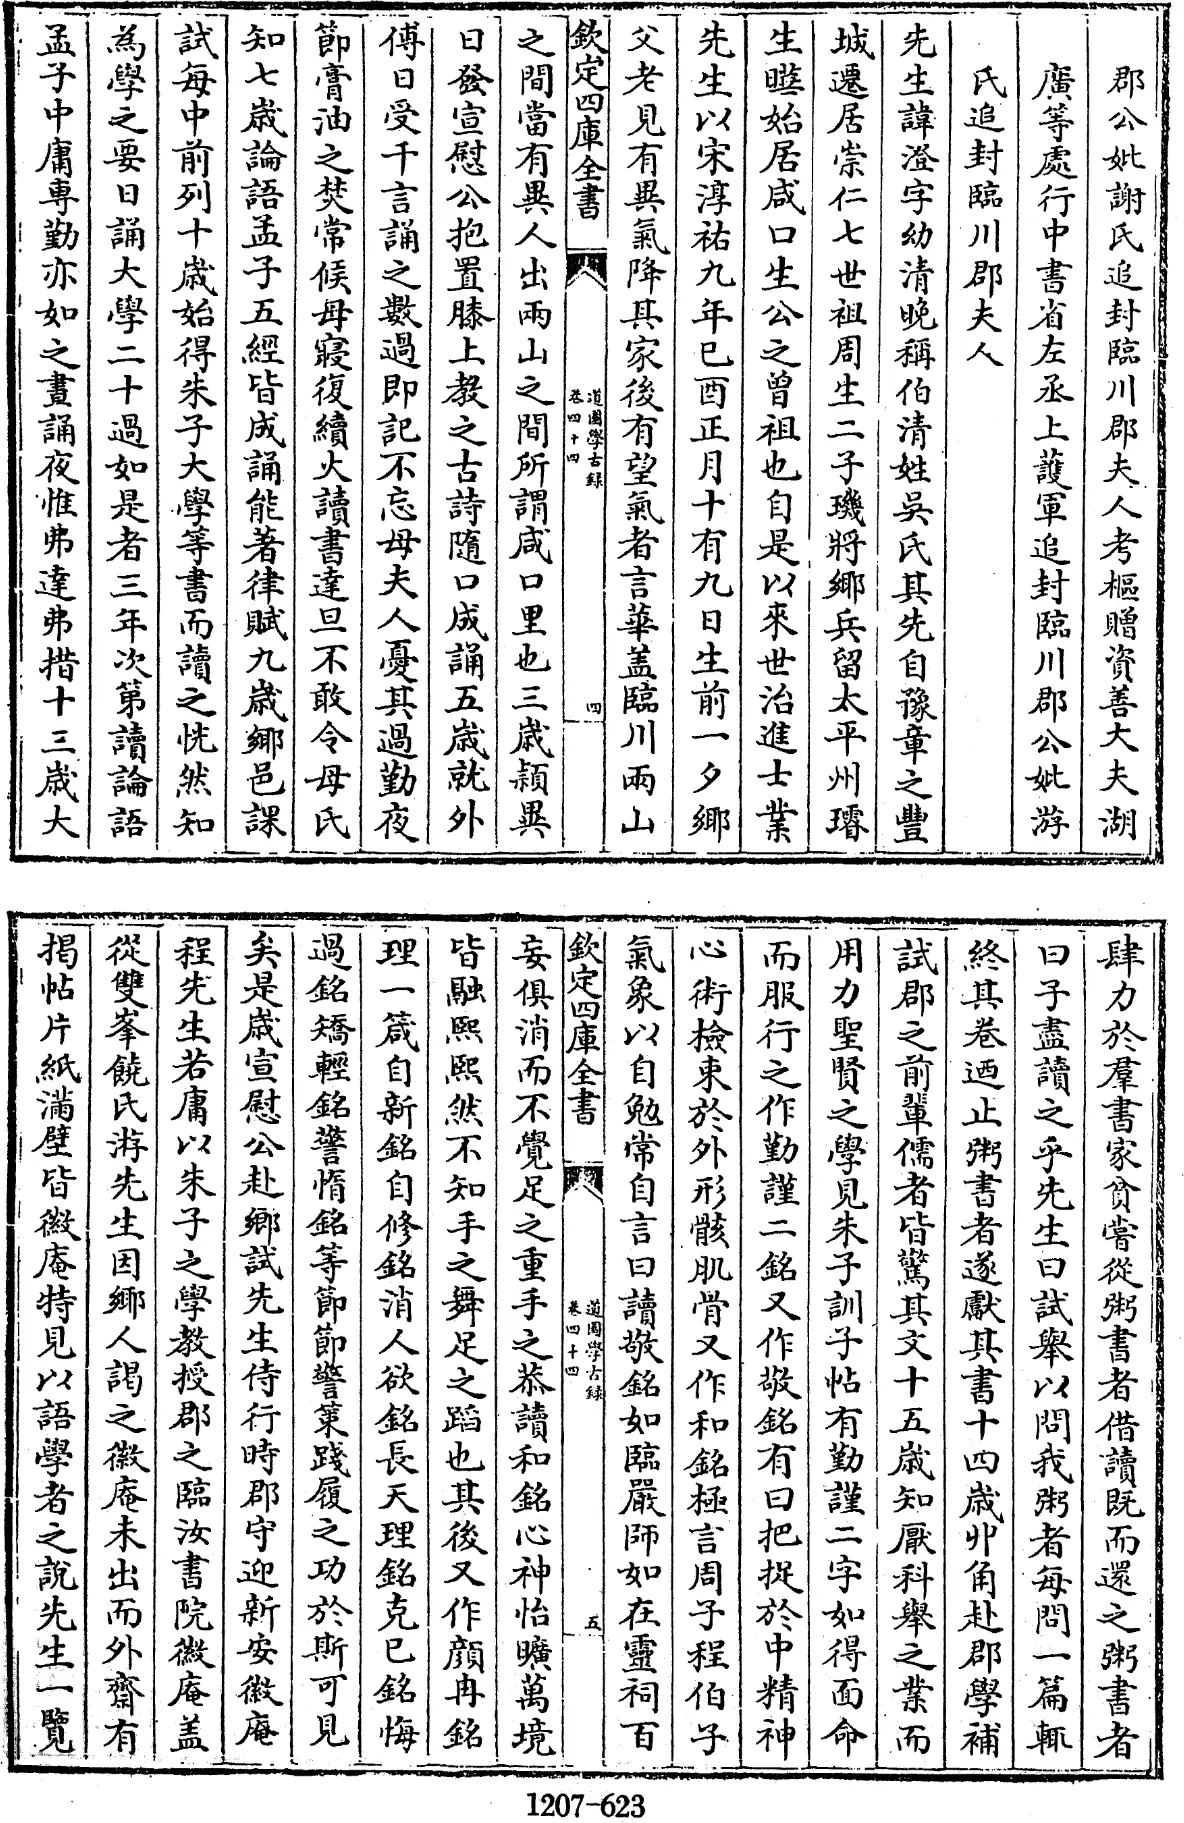 郡公妣謝氏追封臨川郡夫人考樞贈資善大夫湖
廣等處行中書省左丞上䕶軍追封臨川郡公妣游
氏追封臨川郡夫人
先生諱澄字幼清晚稱伯清姓吳氏其先自豫章之豐
城遷居崇仁七世祖周生二子璣將鄉兵留太平州璿
生曄始居咸口生公之曾祖也自是以來世治進士業
先生以宋淳祐九年已酉正月十有九日生前一夕鄉
父老見有異氣降其家後有望氣者言華盖臨川兩山
欽定四庫全書
道園學古録
卷四十四
四
之間當有異人出兩山之間所謂咸口里也三歲穎異
日發宣慰公抱置膝上教之古詩隨口成誦五歲就外
傅日受千言誦之數過即記不忘母夫人憂其過勤夜
節膏油之焚常候母寢復續火讀書達旦不敢令母氏
知七歲論語孟子五經皆成誦能著律賦九歲鄉邑課
試每中前列十歲始得朱子大學等書而讀之恍然知
為學之要日誦大學二十過如是者三年次第讀論語
孟子中庸專勤亦如之晝誦夜惟弗達弗措十三歲大
肆力於羣書家貧嘗從粥書者借讀既而還之粥書者
曰子盡讀之乎先生曰試舉以問我粥者每問一篇輒
終其卷迺止粥書者遂獻其書十四歲丱角赴郡學補
試郡之前輩儒者皆驚其文十五歲知厭科舉之業而
用力聖賢之學見朱子訓子帖有勤謹二字如得面命
而服行之作勤謹二銘又作敬銘有曰把捉於中精神
心術檢束於外形骸肌骨又作和銘極言周子程伯子
氣象以自勉常自言曰讀敬銘如臨嚴師如在靈祠百
欽定四庫全書
道園學古録
卷四十四
五
妄俱消而不覺足之重手之恭讀和銘心神怡曠萬境
皆融熙熙然不知手之舞足之蹈也其後又作顔冉銘
理一箴自新銘自修銘消人欲銘長天理銘克已銘悔
過銘矯輕銘警惰銘等節節警䇿踐履之功於斯可見
矣是歲宣慰公赴鄉試先生侍行時郡守迎新安徽庵
程先生若庸以朱子之學教授郡之臨汝書院徽庵盖
從雙峯饒氏游先生因鄉人謁之徽庵未出而外齋有
揭帖片紙滿壁皆徽庵特見以語學者之說先生一覽
1207-623